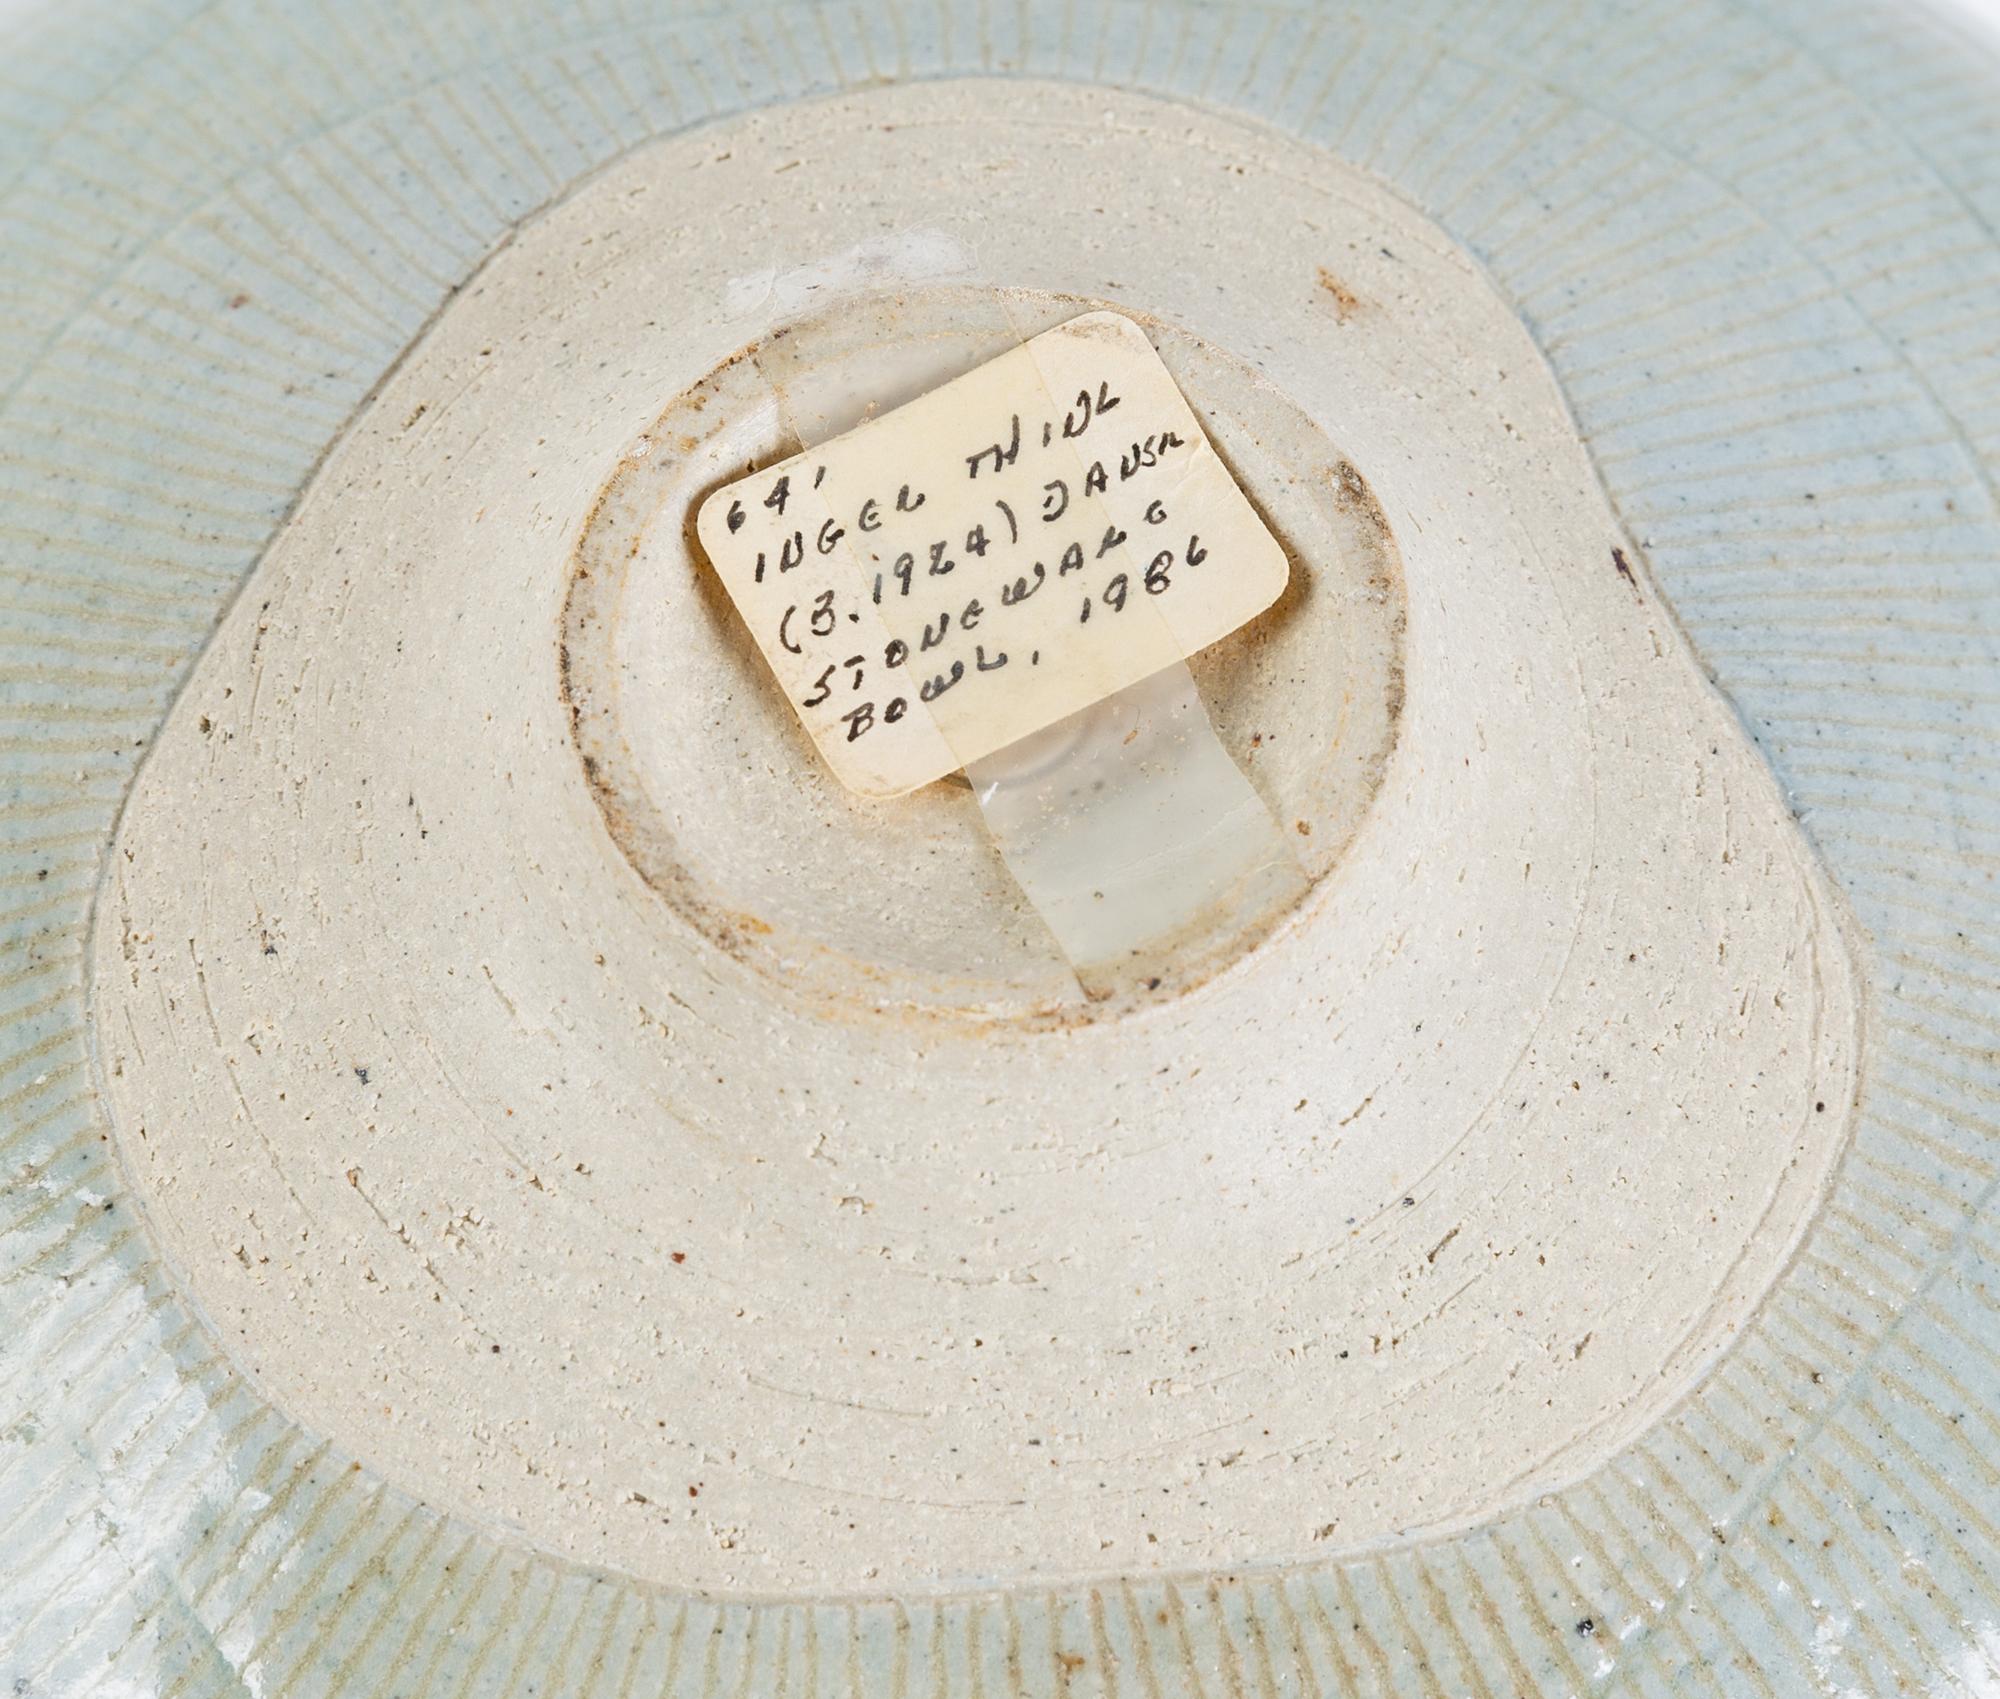 64'
INGER THING
(B. 1924) DANSK
STONEWARE
BOWL, 1986